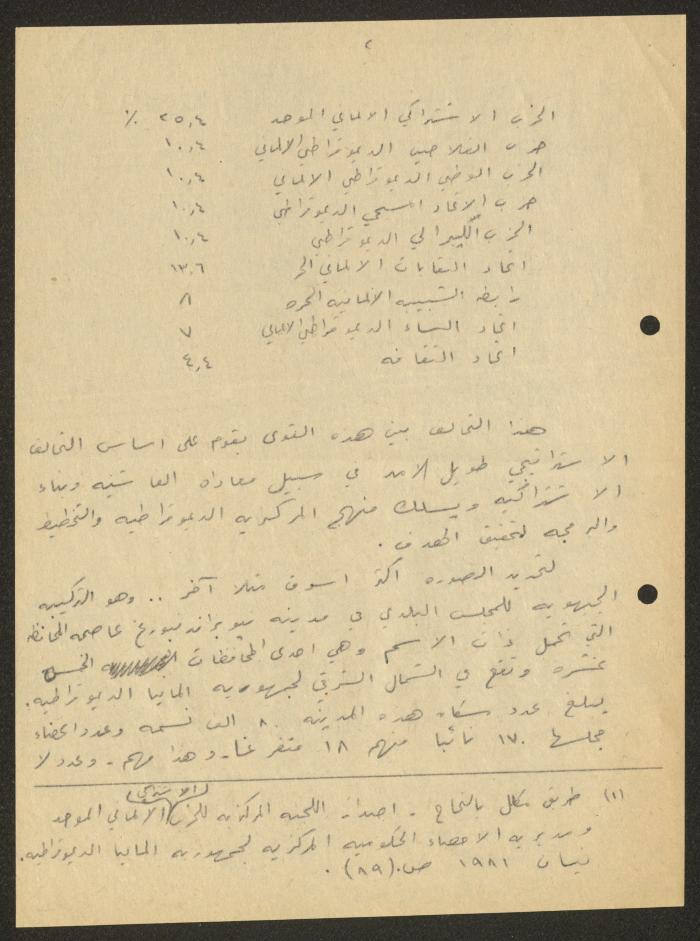 ٢
الحزب الاشتراكي الالماني الموحد ٢٥,٤ ٪
حزب الفلاحين الديموقراطي الالماني ١٠,٤
الحزب الوطني الديموقراطي الالماني ١٠,٤
حزب الاتحاد المسيحي الديموقراطي ١٠,٤
الحزب الليبرالي الديموقراطي ١٠,٤
اتحاد النقابات الالماني الحر ١٣,٦
رابطة الشبيبه الالمانيه الحره ٨
اتحاد النساء الديموقراطي الالماني ٧
اتحاد الثقافه ٤,٤
هذا التحالف بين هذه القوى يقوم على اساس التحالف
الاستراتيجي طويل الامد في سبيل معاداه الفاشيه وبناء
الاشتراكيه ويسلك منهج المركزيه الديموقراطيه والتخطيط
والبرمجه لتحقيق الهدف .
لتحديد الصوره اكثر اسوق مثلا آخر .. وهو التركيبه
الجبهويه للمجلس البلدي في مدينه نيوبراندنبورغ عاصمه المحافظه
التي تحمل ذات الاسم وهي احدى المحافظات الخمس
عشره وتقع في الشمال الشرقي لجمهوريه المانيا الديموقراطيه .
يبلغ عدد سكان هذه المدينه ٨٠ الف نسمه وعدد اعضاء
مجلسها ١٧٠ نائبا منهم ١٨ متفرغا - وهذا مهم - وعدد لا
(١) طريق مكلل بالنجاح - اصدار اللجنه المركزيه للحزب الاشتراكي الالماني الموحد
ومديريه الاحصاء الحكوميه المركزيه لجمهوريه المانيا الديموقراطيه .
نيسان ١٩٨١ ص.(٨٩) .